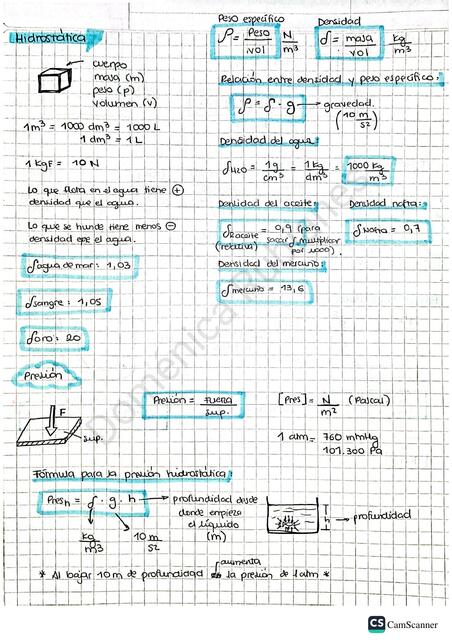 Hidrostática
cuerpo
masa (m)
peso (p)
volumen (v)
1m³ = 1000 dm³ = 1000 L
1 dm³ = 1 L
1 kgF = 10 N
Lo que flota en el agua tiene ⊕
densidad que el agua.
Lo que se hunde tiene menos ⊖
densidad que el agua.
δagua de mar: 1,03
δsangre: 1,05
δoro: 20
Peso específico
ρ = Peso / vol N / m³
Densidad
δ = masa / vol kg / m³
Relación entre densidad y peso específico:
ρ = δ · g → gravedad.
(10 m / s²)
Densidad del agua:
δH2O = 1 g / cm³ = 1 kg / dm³ = 1000 kg / m³
Densidad del aceite:
δaceite = 0,9 (para
(relativa) sacar δ multiplicar
por 1000).
Densidad nafta:
δNafta = 0,7
Densidad del mercurio:
δmercurio = 13,6
Presión
F
sup.
Presión = fuerza / sup.
[Pres] = N / m² (Pascal)
1 atm = 760 mmHg
101.300 Pa
Fórmula para la presión hidrostática:
Pres h = δ · g · h → profundidad desde
donde empieza
el líquido
(m)
kg / m³
10 m / s²
h → profundidad
aumenta
* Al bajar 10 m de profundidad la presión de 1 atm *
Domenica
CS CamScanner